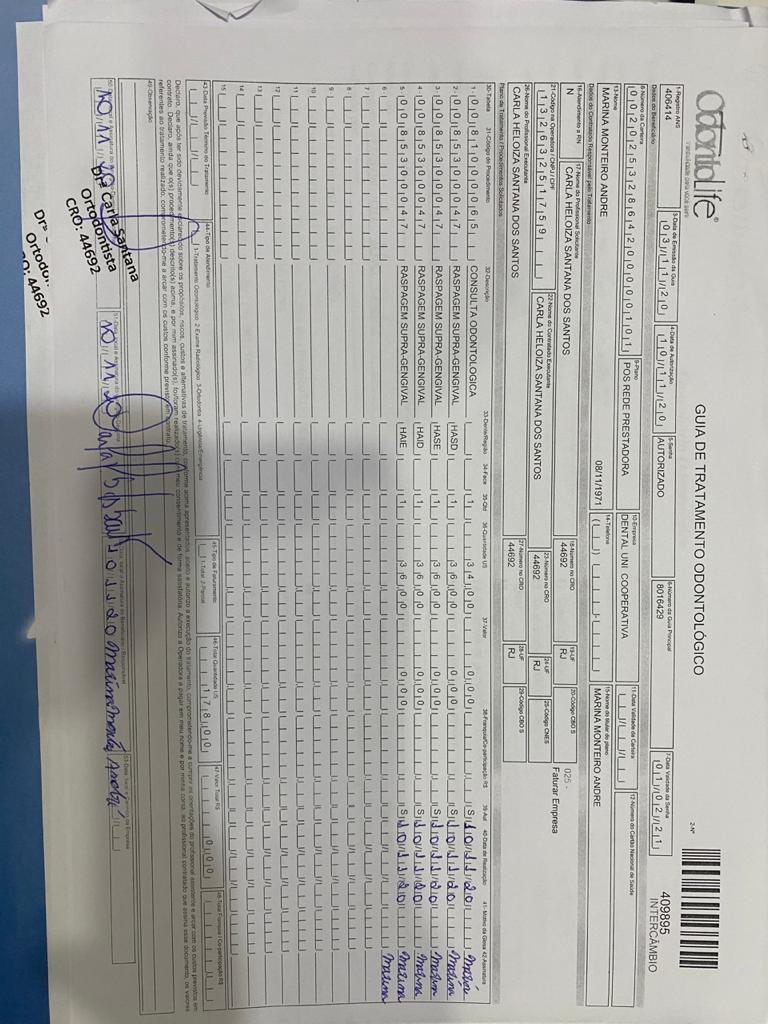 Odontolife®
Tranquilidade para você sorrir
GUIA DE TRATAMENTO ODONTOLÓGICO
2-Nº
409895
INTERCÂMBIO
1-Registro ANS
406414
3-Data de Emissão da Guia
03/11/20
4-Data de Autorização
10/11/20
5-Senha
AUTORIZADO
6-Número da Guia Principal
8016429
7-Data Validade da Senha
01/02/21
Dados do Beneficiário
8-Número da Carteira
00202532864200000101
9-Plano
POS REDE PRESTADORA
10-Empresa
DENTAL UNI COOPERATIVA
11-Data Validade da Carteira
12-Número do Cartão Nacional de Saúde
13-Nome
MARINA MONTEIRO ANDRE
08/11/1971
14-Telefone
15-Nome do titular do plano
MARINA MONTEIRO ANDRE
Dados do Contratado Responsável pelo Tratamento
16-Atendimento a RN
N
17-Nome do Profissional Solicitante
CARLA HELOIZA SANTANA DOS SANTOS
18-Número no CRO
44692
19-UF
RJ
20-Código CBO S
025 -
Faturar Empresa
21-Código na Operadora / CNPJ / CPF
13263251759
22-Nome do Contratado Executante
CARLA HELOIZA SANTANA DOS SANTOS
23-Número no CRO
44692
24-UF
RJ
25-Código CNES
26-Nome do Profissional Executante
CARLA HELOIZA SANTANA DOS SANTOS
27-Número no CRO
44692
28-UF
RJ
29-Código CBO S
Plano de Tratamento / Procedimentos Solicitados
30-Tabela 31-Código do Procedimento 32-Descrição 33-Dente/Região 34-Face 35-Qtd 36-Quantidade US 37-Valor 38-Franquia/Co-participação R$ 39-Aut 40-Data de Realização 41-Motivo da Glosa 42-Assinatura
1- 00 81000065 CONSULTA ODONTOLOGICA 1 34,00 0,00 S 10/11/20
2- 00 85300047 RASPAGEM SUPRA-GENGIVAL HASD 1 36,00 0,00 S 10/11/20 Marina
3- 00 85300047 RASPAGEM SUPRA-GENGIVAL HASE 1 36,00 0,00 S 10/11/20 Marina
4- 00 85300047 RASPAGEM SUPRA-GENGIVAL HAID 1 36,00 0,00 S 10/11/20 Marina
5- 00 85300047 RASPAGEM SUPRA-GENGIVAL HAIE 1 36,00 0,00 S 10/11/20 Marina
6- Marina
7-
8-
9-
10-
11-
12-
13-
14-
15-
43-Data Previsão Término do Tratamento
44-Tipo de Atendimento
1-Tratamento Odontológico 2-Exame Radiológico 3-Ortodontia 4-Urgência/Emergência
45-Tipo de Faturamento
1-Total 2-Parcial
46-Total Quantidade US
178,00
47-Valor Total R$
0,00
48-Total Franquia / Co-participação R$
Declaro, que após ter sido devidamente esclarecido sobre os propósitos, riscos, custos e alternativas de tratamento, conforme acima apresentados, aceito e autorizo a execução do tratamento, comprometendo-me a cumprir as orientações do profissional assistente e arcar com os custos previstos em
contrato. Declaro, ainda que o(s) procedimento(s) descrito(s) acima, e por mim assinado(s), foi/foram realizado(s) com meu consentimento e de forma satisfatória. Autorizo a Operadora a pagar em meu nome e por minha conta, ao profissional contratado que assina esse documento, os valores
referentes ao tratamento realizado, comprometendo-me a arcar com os custos conforme previsto em contrato.
49-Observação
10/11/20
10/11/20
10/11/20 Marina Monteiro André
Drª Carla Santana
Ortodontista
CRO: 44692